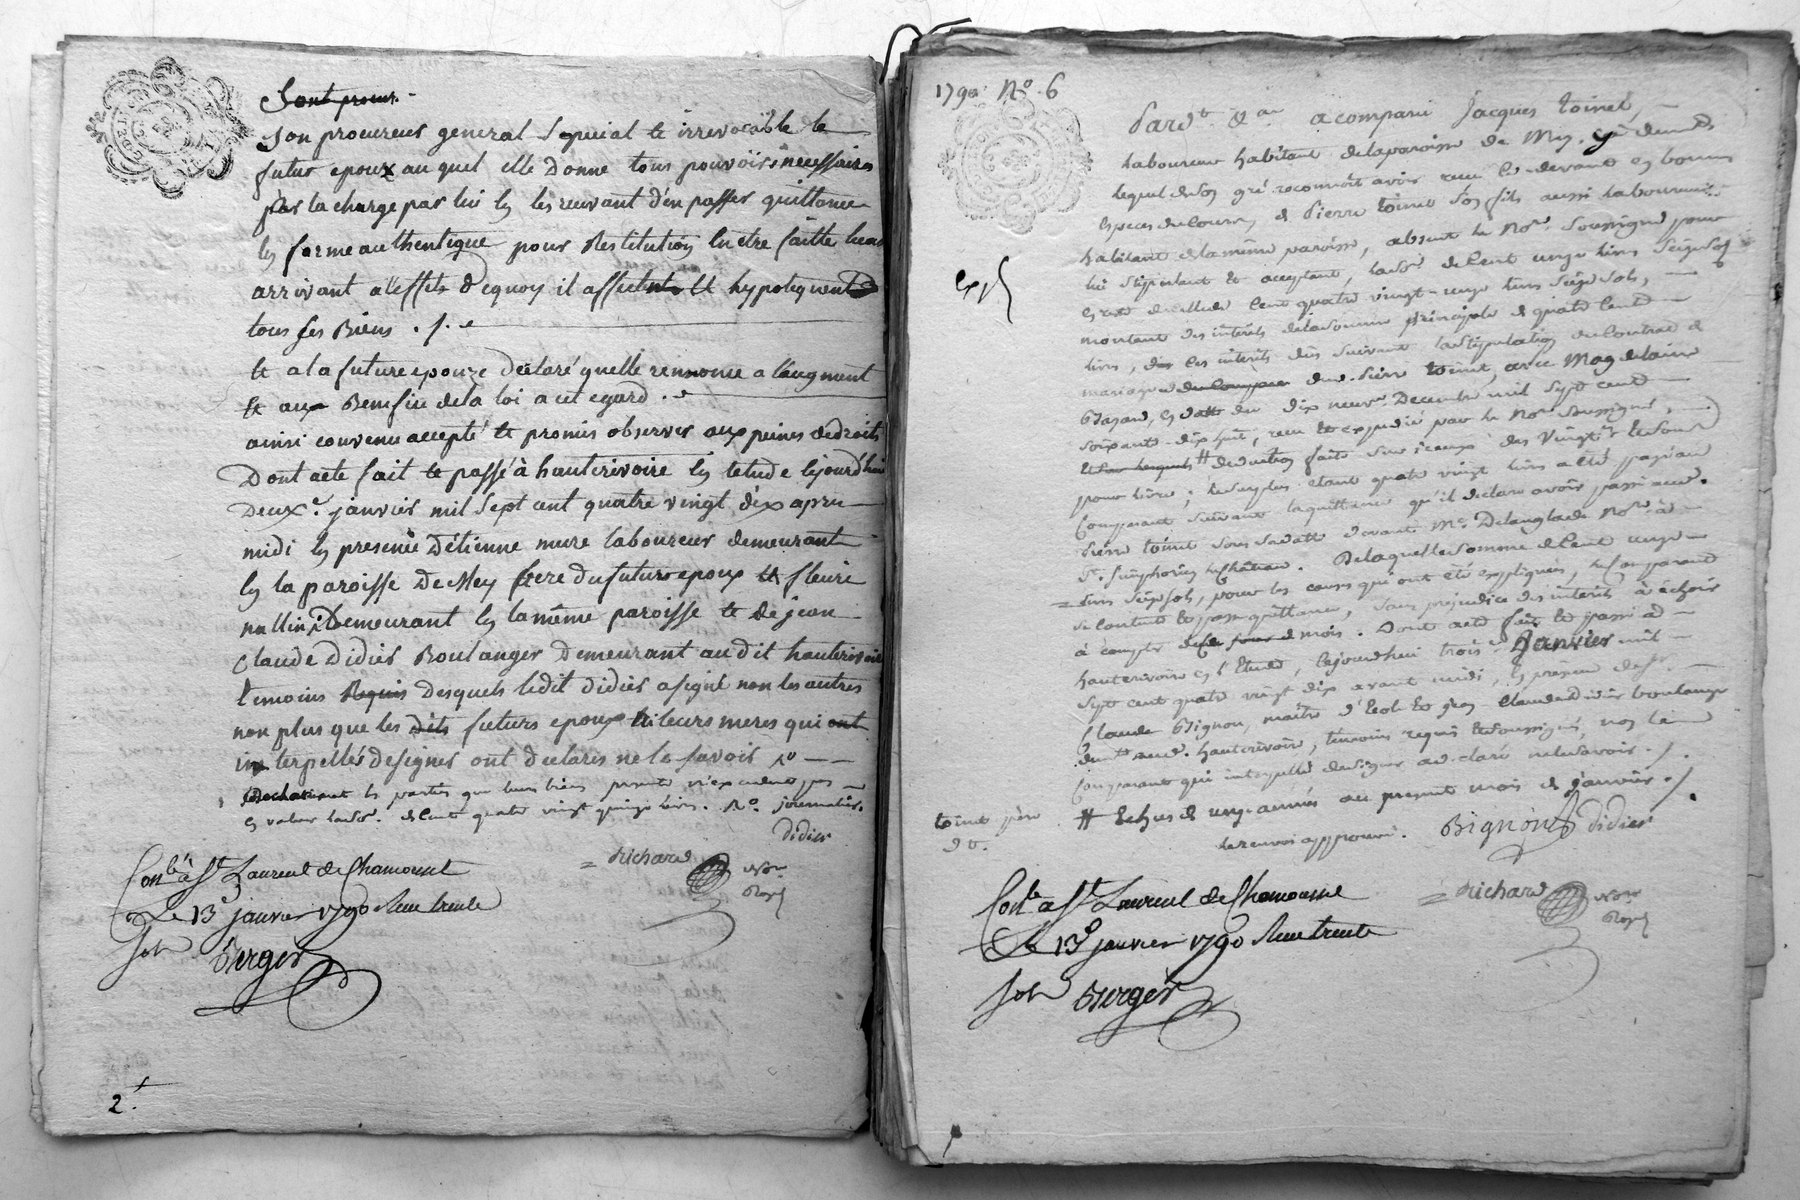 Sont procur.
Son procureur general Special et irrevocable le
futur epoux auquel elle donne tous pouvoirs necessaires
par la charge par lui En les recuvant d'en passer quittance
En forme authentique pour Restitution En etre faitte lieu
arrivant a l'effets de quoy il affectents et hypotequent
tous ses Biens . /. e
et a la future epouze declaré quelle rennonce a laugment
et aux Benefice de la loi a cet egard .
ainsi convenu accepté et promis observer aux peines de droits
Dont acte fait et passé à hauterivoire En letude le jourd'hui
Deux.e janvier mil sept cent quatre vingt dix apres
midi En presence D'étienne mure laboureur demeurant
En la paroisse De Mey frere du futur epoux et fleuri
nallin Demeurant En la même paroisse et de jean
Claude Didier Boulanger Demeurant au dit hauterivoire
temoins Requis desquels ledit didier a signé non les autres
non plus que les dits futurs epoux ni leurs meres qui ont
interpellés de signer ont declarés ne le savoir
Declarant les parties que leurs biens presents n'excedent pas
En valeur la so.e de Cent quatre vingt quinze livres. journalier.
didier
= Richard
No.re
Royl
Con.lé a St Laurent de Chamousset
Le 13e janvier 1790 Reçu trente
sols
Berger
2.e
1790 No. 6
Pardt a comparu Jacques toinet,
laboureur habitant de la paroisse de Mey,
lequel de son gré reconnoit avoir recu ci-devant en bonnes
especes de Cours, de Pierre toinet son fils aussi laboureur
habitant de la même paroisse, absent le Nore. soussigné pour
lui stipulant et acceptant, la so.e de Cent onze livres Seize sols,
Cent quatre vingt-onze livres seize sols,
montant des intérêts de la somme principale de quatre Cents
livres, les intérêts dûs suivant la stipulation du Contrat de
mariage dud. Pierre toinet, avec Magdelaine
En datte du dix neuf Decembre mil sept cent
soixante-dix huit, recu et expedié par le Nore. soussigné,
# deduction faite sur iceux des vingt
pour livre ; le surplus etant quatre vingt livres a été payé au
Comparant suivant la quittance qu'il declare avoir passé aud.
Pierre toinet sous sa datte devant Me. Delanglade Nore. à
St. Simphorien le Château. De laquelle somme de Cent onze
livres Seize sols, pour les causes qui ont été expliquées, le Comparant
se contente et passe quittance, sans prejudice des interêts à échoir
à compter de ce mois. Dont acte fait et passé à
hauterivoire en l'Etude, le jourdhui trois Janvier mil
sept cent quatre vingt dix avant midi, En presence de sr.
Claude Bignon, maître d'Ecole et jean Claude Didier boulanger
demt. aud. hauterivoire, temoins requis et soussignés, non led.
Comparant qui interpellé de signer a declaré ne le savoir . /.
# Echus de onze années au present mois de Janvier . / .
le renvoi approuvé.
toinet père
Bignon
didier
= Richard
No.re
Royl
Con.lé a St Laurent de Chamousset
Le 13e janvier 1790 Reçu trente
sols
Berger